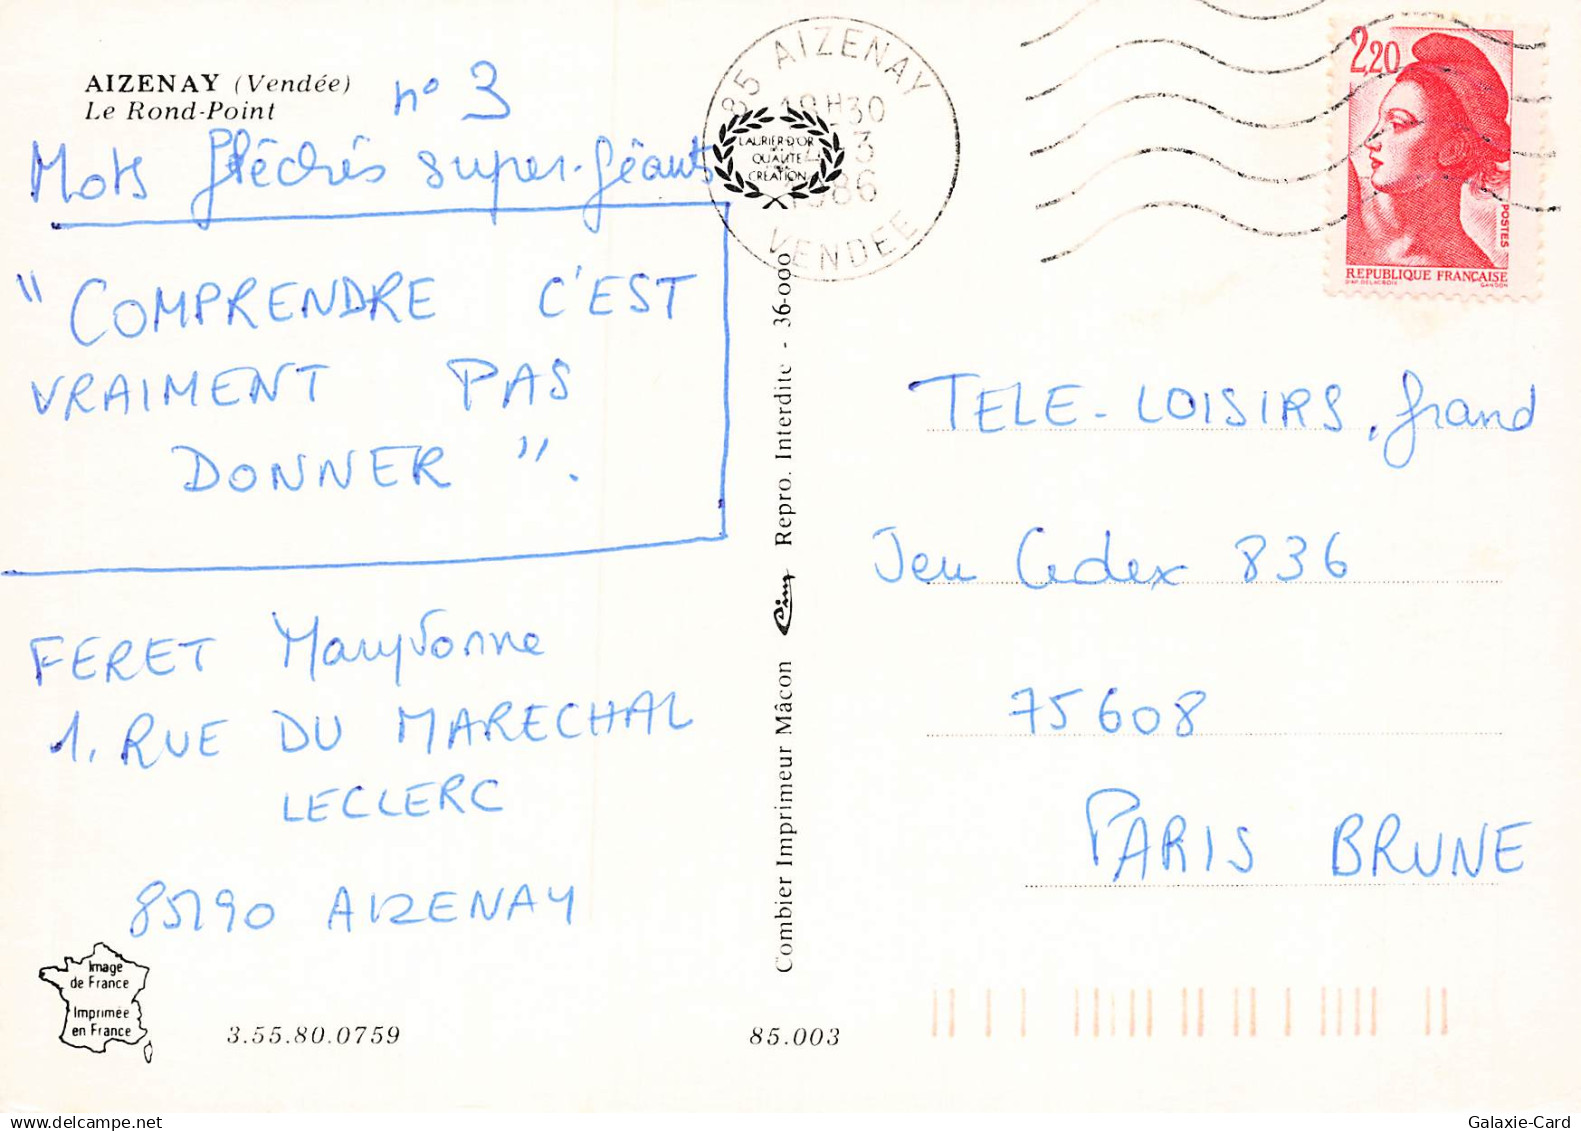 AIZENAY (Vendée)
Le Rond-Point
n° 3
Mots fléchés super-géants
"COMPRENDRE C'EST
VRAIMENT PAS
DONNER".
FERET Maryvonne
1, RUE DU MARECHAL
LECLERC
85190 AIZENAY
Image
de France
Imprimée
en France
3.55.80.0759
85.003
Combier Imprimeur Mâcon Cim Repro. Interdite - 36-000
LAURIER D'OR
QUALITE
CREATION
85 AIZENAY
18H30
3
1986
VENDEE
2,20
POSTES
REPUBLIQUE FRANÇAISE
D'AP. DELACROIX GANDON
TELE-LOISIRS, grand
Jeu Cedex 836
75608
PARIS BRUNE
Galaxie-Card